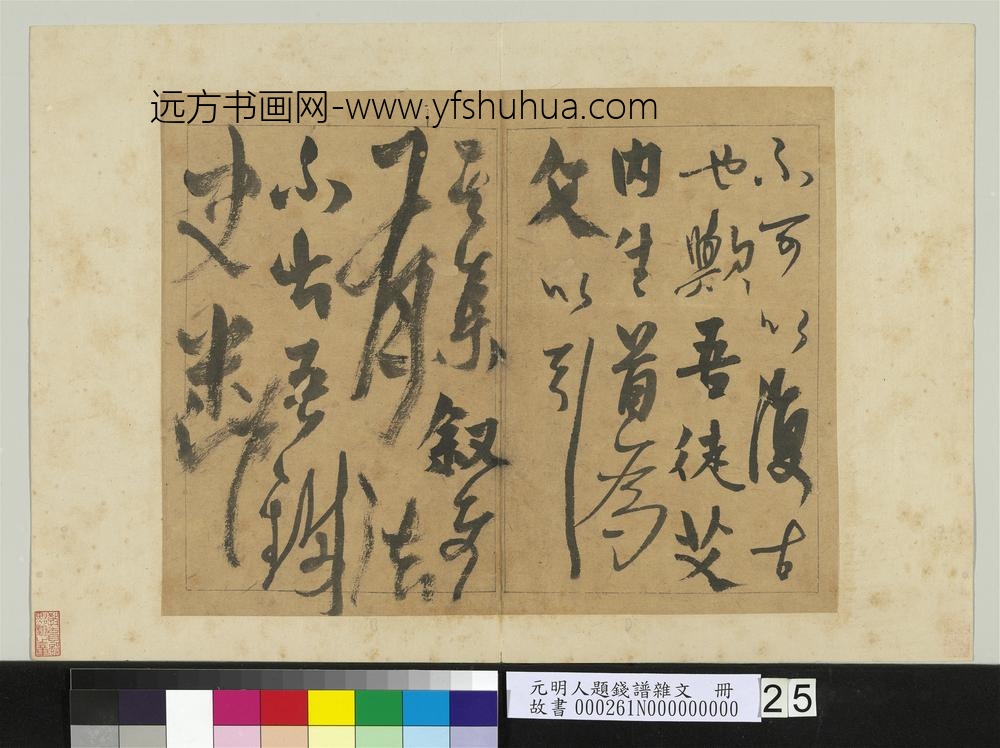 远方书画网-www.yfshuhua.com
不可以復古
也歟吾徒艾
内生首為
文以引
集叙
有法
不出吾鐵
史
元明人題錢譜雜文　冊
故書 000261N000000000
25